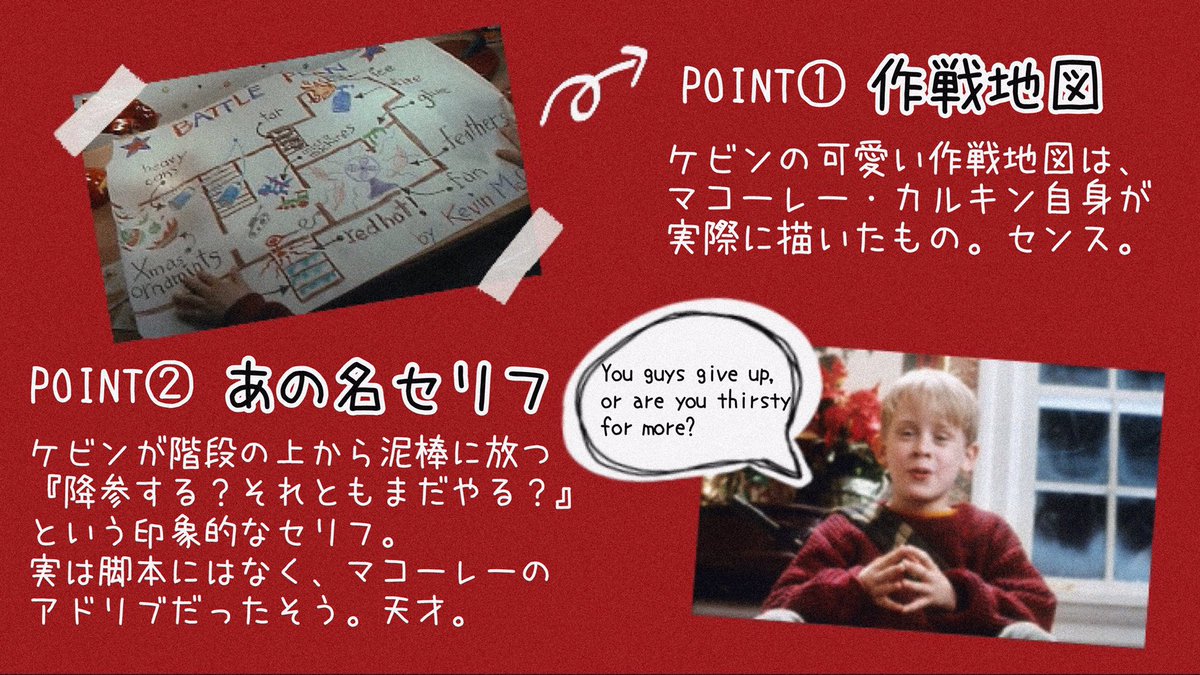 BATTLE PLAN
ice
tar
glue
wires
heavy cans
feathers
fan
red hot!
by Kevin
Xmas
ornamints
POINT① 作戦地図
ケビンの可愛い作戦地図は、
マコーレー・カルキン自身が
実際に描いたもの。センス。
POINT② あの名セリフ
ケビンが階段の上から泥棒に放つ
『降参する？それともまだやる？』
という印象的なセリフ。
実は脚本にはなく、マコーレーの
アドリブだったそう。天才。
You guys give up,
or are you thirsty
for more?